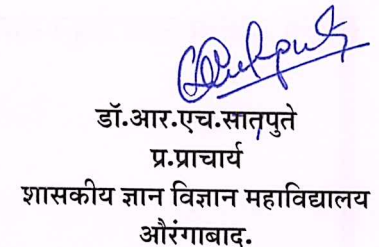 डॉ.आर.एच.सातपुते
प्र.प्राचार्य
शासकीय ज्ञान विज्ञान महाविद्यालय
औरंगाबाद.